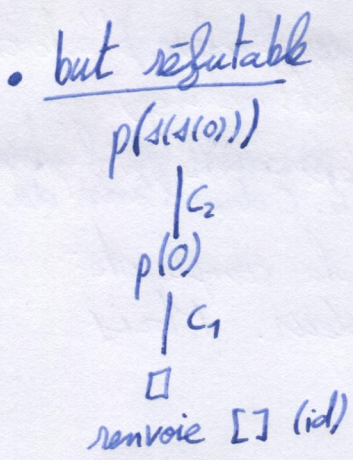 • but réfutable
p(s(s(0)))
| C₂
p(0)
| C₁
□
renvoie [] (id)